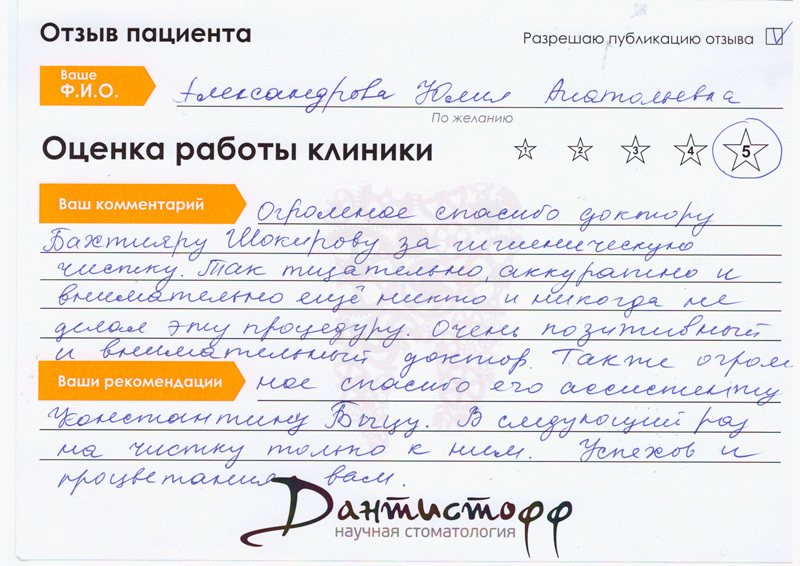 Отзыв пациента
Разрешаю публикацию отзыва
Ваше
Ф.И.О.
Александрова Юлия Анатольевна
По желанию
Оценка работы клиники
1 2 3 4 5
Ваш комментарий
Огромное спасибо доктору
Бахтияру Шокирову за гигиеническую
чистку. Так тщательно, аккуратно и
внимательно ещё никто и никогда не
делал эту процедуру. Очень позитивный
и внимательный доктор. Также огром
Ваши рекомендации
ное спасибо его ассистенту
Константину Быцу. В следующий раз
на чистку только к ним. Успехов и
процветания вам.
Дантистофф
научная стоматология